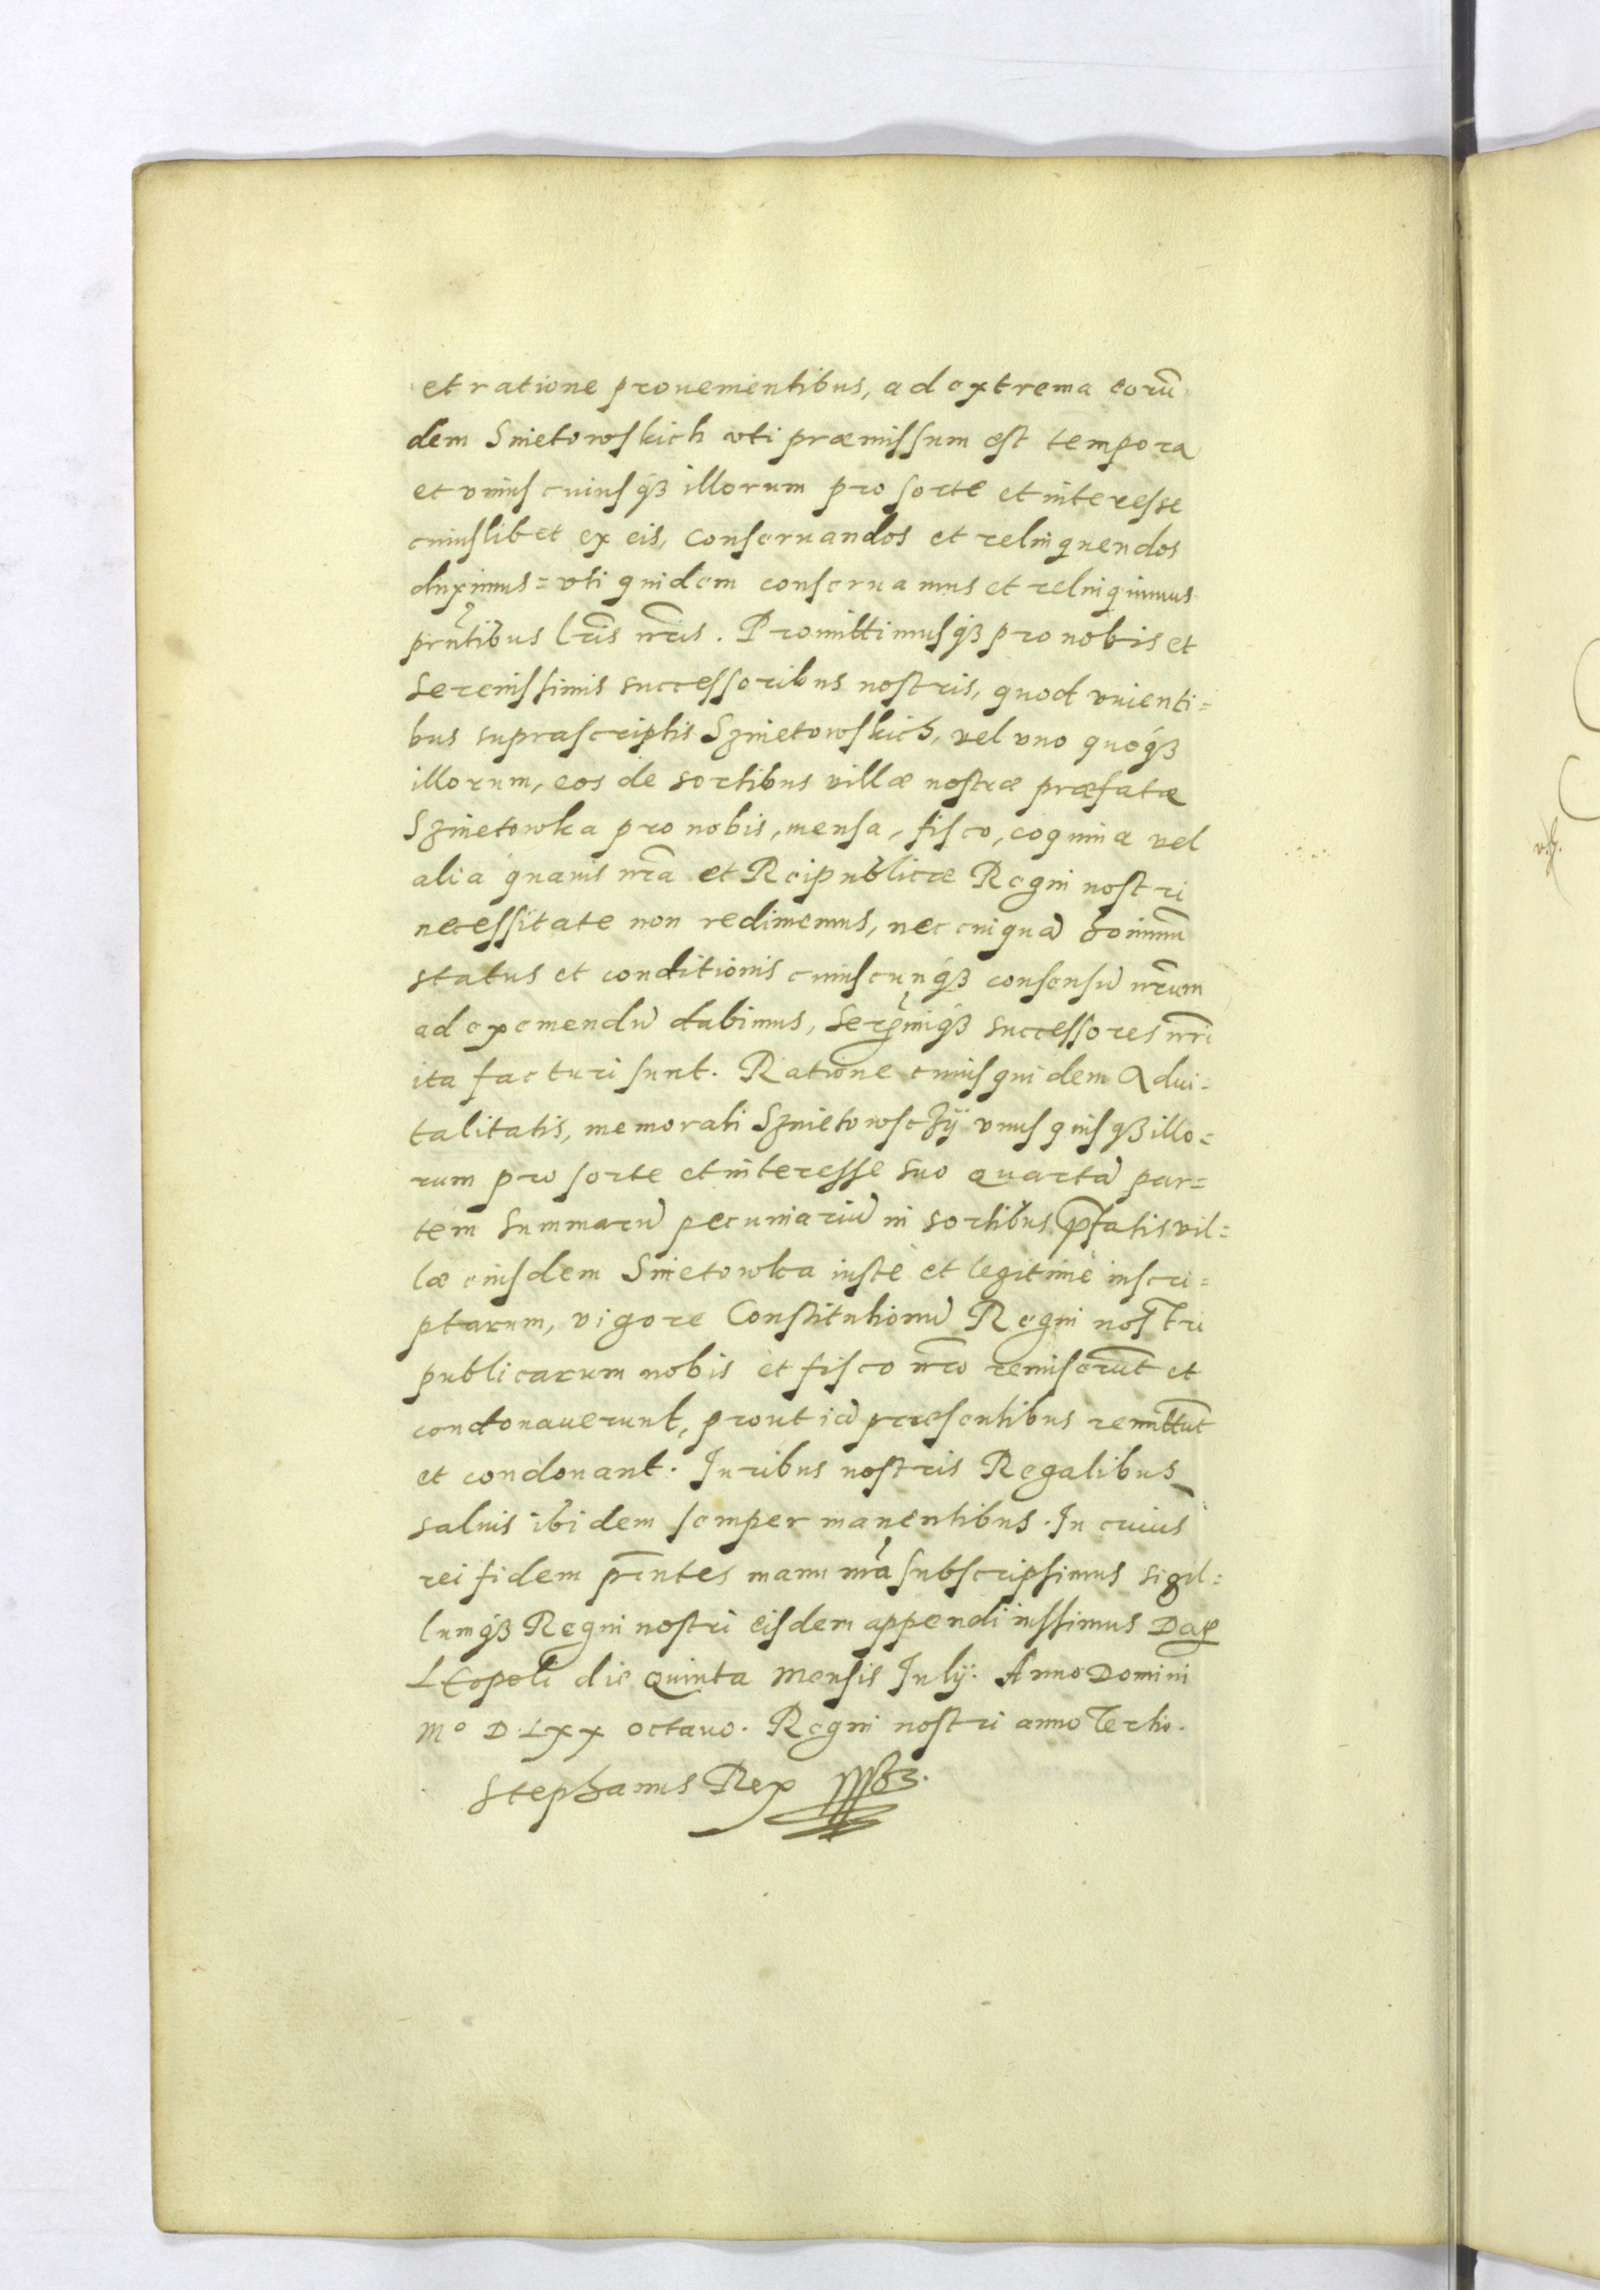 et ratione prouenientibus, ad extrema eorū
dem Snietowskich vti præmissum est tempora
et vnius cuiusqȝ illorum pro sorte et interesse
cuiuslibet ex eis, conseruandos et relinquendos
duximus = vti quidem conseruamus et relinquimus
pn̄tibus lr̄is nr̄is. Promittimusqȝ pro nobis et
Serenissimis successoribus nostris, quod viuenti=
bus suprascriptis Sznietowskich, vel vno quoqȝ
illorum, eos de sortibus villæ nostræ præfatæ
Sznietowka pro nobis, mensa, fisco, coquina vel
alia quauis nr̄a et Reipublicæ Regni nostri
necessitate non redimemus, nec cuiquā hominū
status et conditionis cuiuscunqȝ consensū nr̄um
ad eximendū dabimus, Ser̄miqȝ successores nr̄i
ita facturi sunt. Ratione cuius quidem Advi=
talitatis, memorati Sznietowsczÿ vnusquisqȝ illo=
rum pro sorte et interesse suo quartā par=
tem summarū pecuniariū in sortibus p̄fatis vil=
læ eiusdem Snietowka iustè et legitimè inscri=
ptarum, vigore Constitutionū Regni nostri
publicarum nobis et fisco nr̄o remiserūt et
condonauerunt, prout id præsentibus remittūt
et condonant. Iuribus nostris Regalibus
saluis ibidem semper manentibus. In cuius
rei fidem pr̄ntes manu nr̄a subscripsimus sigil=
lumqȝ Regni nostri eisdem appendi iussimus Daꝭ
Leopoli die quinta Mensis Julÿ. Anno Domini
Mº D. Lxx octauo. Regni nostri anno Tertio.
Stephanus Rex